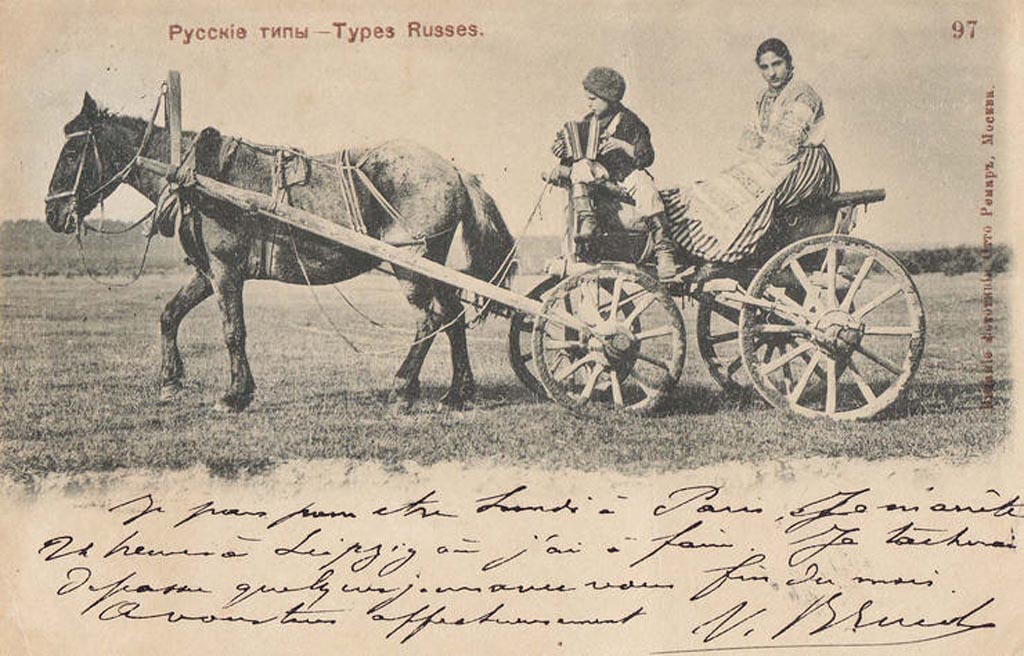 Русскіе типы — Types Russes.
97
Изданіе фототипіи Отто Ренаръ, Москва.
Je pars pour être Lundi à Paris. Je m'arrête
24 heures à Leipzig où j'ai à faire. Je tacherai
de passer quelques jours avec vous fin du mois.
A vous tous affectueusement